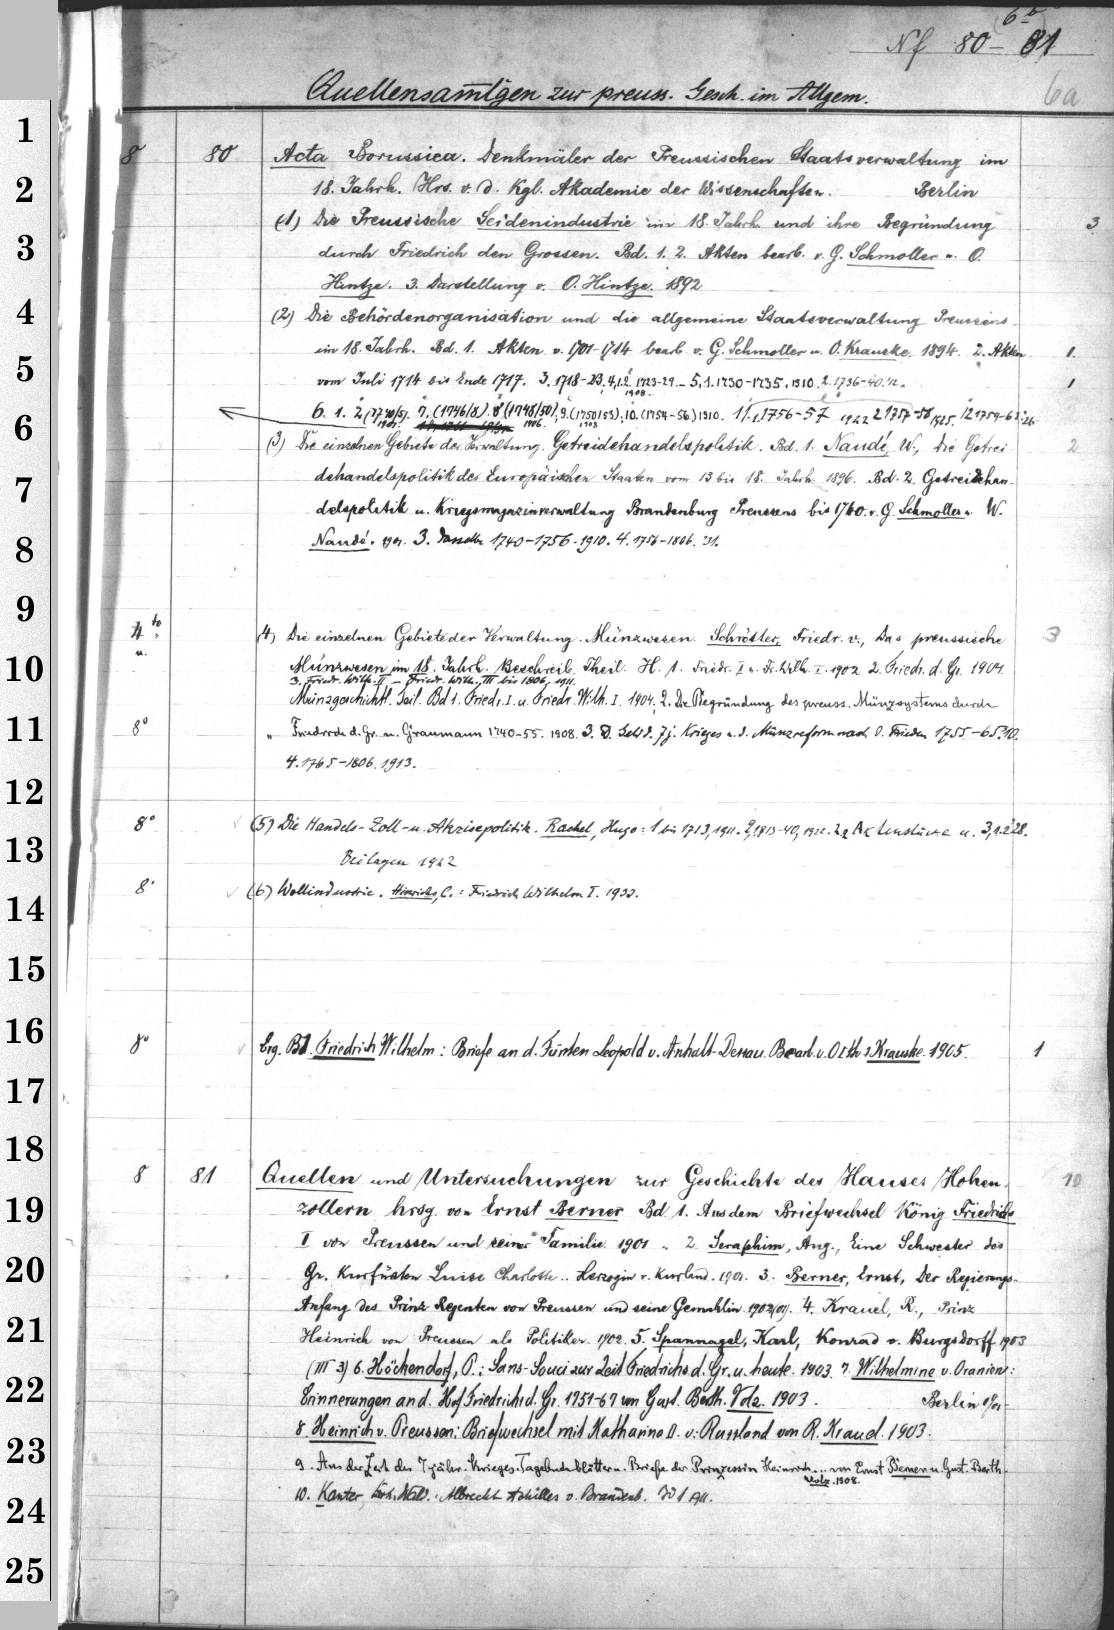 6b
Nf 80-81
Quellensammlgen zur preuss. Gesch. im Allgem.
6a
1
8 80 Acta Borussica. Denkmäler der Preussischen Staatsverwaltung im
2
18. Jahrh. Hrs. v. d. Kgl. Akademie der Wissenschaften. Berlin
(1) Die Preussische Seidenindustrie im 18. Jahrh. und ihre Begründung 3
3
durch Friedrich den Grossen. Bd. 1. 2. Akten bearb. v. G. Schmoller u. O.
Hintze. 3. Darstellung v. O. Hintze. 1892
4
(2) Die Behördenorganisation und die allgemeine Staatsverwaltung Preussens
im 18. Jahrh. Bd. 1. Akten v. 1701-1714 bearb. v. G. Schmoller u. O. Krauske. 1894. 2. Akten 1
5
vom Juli 1714 bis Ende 1717. 3. 1718-23. 4,1.2. 1723-29. 1908. - 5,1. 1730-1735, 1910. 2. 1736-40. 12. 1
6
6. 1. 2 (1740/5) 1901. 7. (1746/8) 8 (1748/50) 1906. 9. (1750/53) 1908. 10. (1754-56) 1910. 11,1 1756-57 1922 2 1757-58 1925. 12 1759-63. 26
(3) Die einzelnen Gebiete der Verwaltung. Getreidehandelspolitik. Bd. 1. Naudé, W., Die Getrei- 2
7
dehandelspolitik der Europäischen Staaten vom 13 bis 18. Jahrh. 1896. Bd. 2. Getreidehan-
delspolitik u. Kriegsmagazinverwaltung Brandenburg Preussens bis 1740. v. G. Schmoller u. W.
8
Naudé. 1901. 3. 1740-1756. 1910. 4. 1756-1806. 31.
9
4to u. (4) Die einzelnen Gebiete der Verwaltung. Münzwesen. Schrötter, Friedr. v., Das preussische 3
10
Münzwesen im 18. Jahrh. Beschreib. Theil. H. 1. Friedr. I u. Fr. Wilh. I. 1902 2. Friedr. d. Gr. 1904.
3. Friedr. Wilh. II - Friedr. Wilh. III bis 1806. 1911.
Münzgeschichtl. Teil. Bd 1. Friedr. I. u. Friedr. Wilh. I. 1904. 2. Die Begründung des preuss. Münzsystems durch
11
8° " Friedrich d. Gr. u. Graumann 1740-55. 1908. 3. D. Geld d. 7j. Krieges u. d. Münzreform nach d. Frieden 1755-65. 10.
4. 1765-1806. 1913.
12
8° (5) Die Handels- Zoll- u. Akzisepolitik. Rachel, Hugo: 1 bis 1713, 1911. 2,1 1713-40, 1922. 2,2 Aktenstücke u. 3,1.2 28.
13
Beilagen 1922
8° (6) Wollindustrie. Hinrichs, C.: Friedrich Wilhelm I. 1933.
14
15
16
8° Erg. Bd. Friedrich Wilhelm: Briefe an d. Fürsten Leopold v. Anhalt-Dessau. Bearb. v. Otto Krauske. 1905. 1
17
18
8 81 Quellen und Untersuchungen zur Geschichte des Hauses Hohen- 10
19
zollern hrsg. von Ernst Berner Bd 1. Aus dem Briefwechsel König Friedrichs
I von Preussen und seiner Familie. 1901 .. 2. Seraphim, Aug., Eine Schwester des
20
Gr. Kurfürsten Luise Charlotte .. Herzogin v. Kurland. 1901. 3. Berner, Ernst, Der Regierungs-
Anfang des Prinz Regenten von Preussen und seine Gemahlin. 1902. 4. Krauel, R., Prinz
21
Heinrich von Preussen als Politiker. 1902. 5. Spannagel, Karl, Konrad v. Burgsdorff. 1903
(III 3) 6. Höckendorf, P.: Sans-Souci zur Zeit Friedrichs d. Gr. u. heute. 1903. 7. Wilhelmine v. Oranien:
22
Erinnerungen an d. Hof Friedrich d. Gr. 1751-67 von Gust. Berth. Volz. 1903. Berlin
8. Heinrich v. Preussen: Briefwechsel mit Katharina II. v. Russland von R. Krauel. 1903.
23
9. Aus der Zeit des 7jähr. Krieges. Tagebuchblätter u. Briefe der Prinzessin Heinrich ... von Ernst Berner u. Gust. Berth.
Volz. 1908.
10. Kanter, Erh. Wald.: Albrecht Achilles v. Brandenb. Bd 1 1911.
24
25